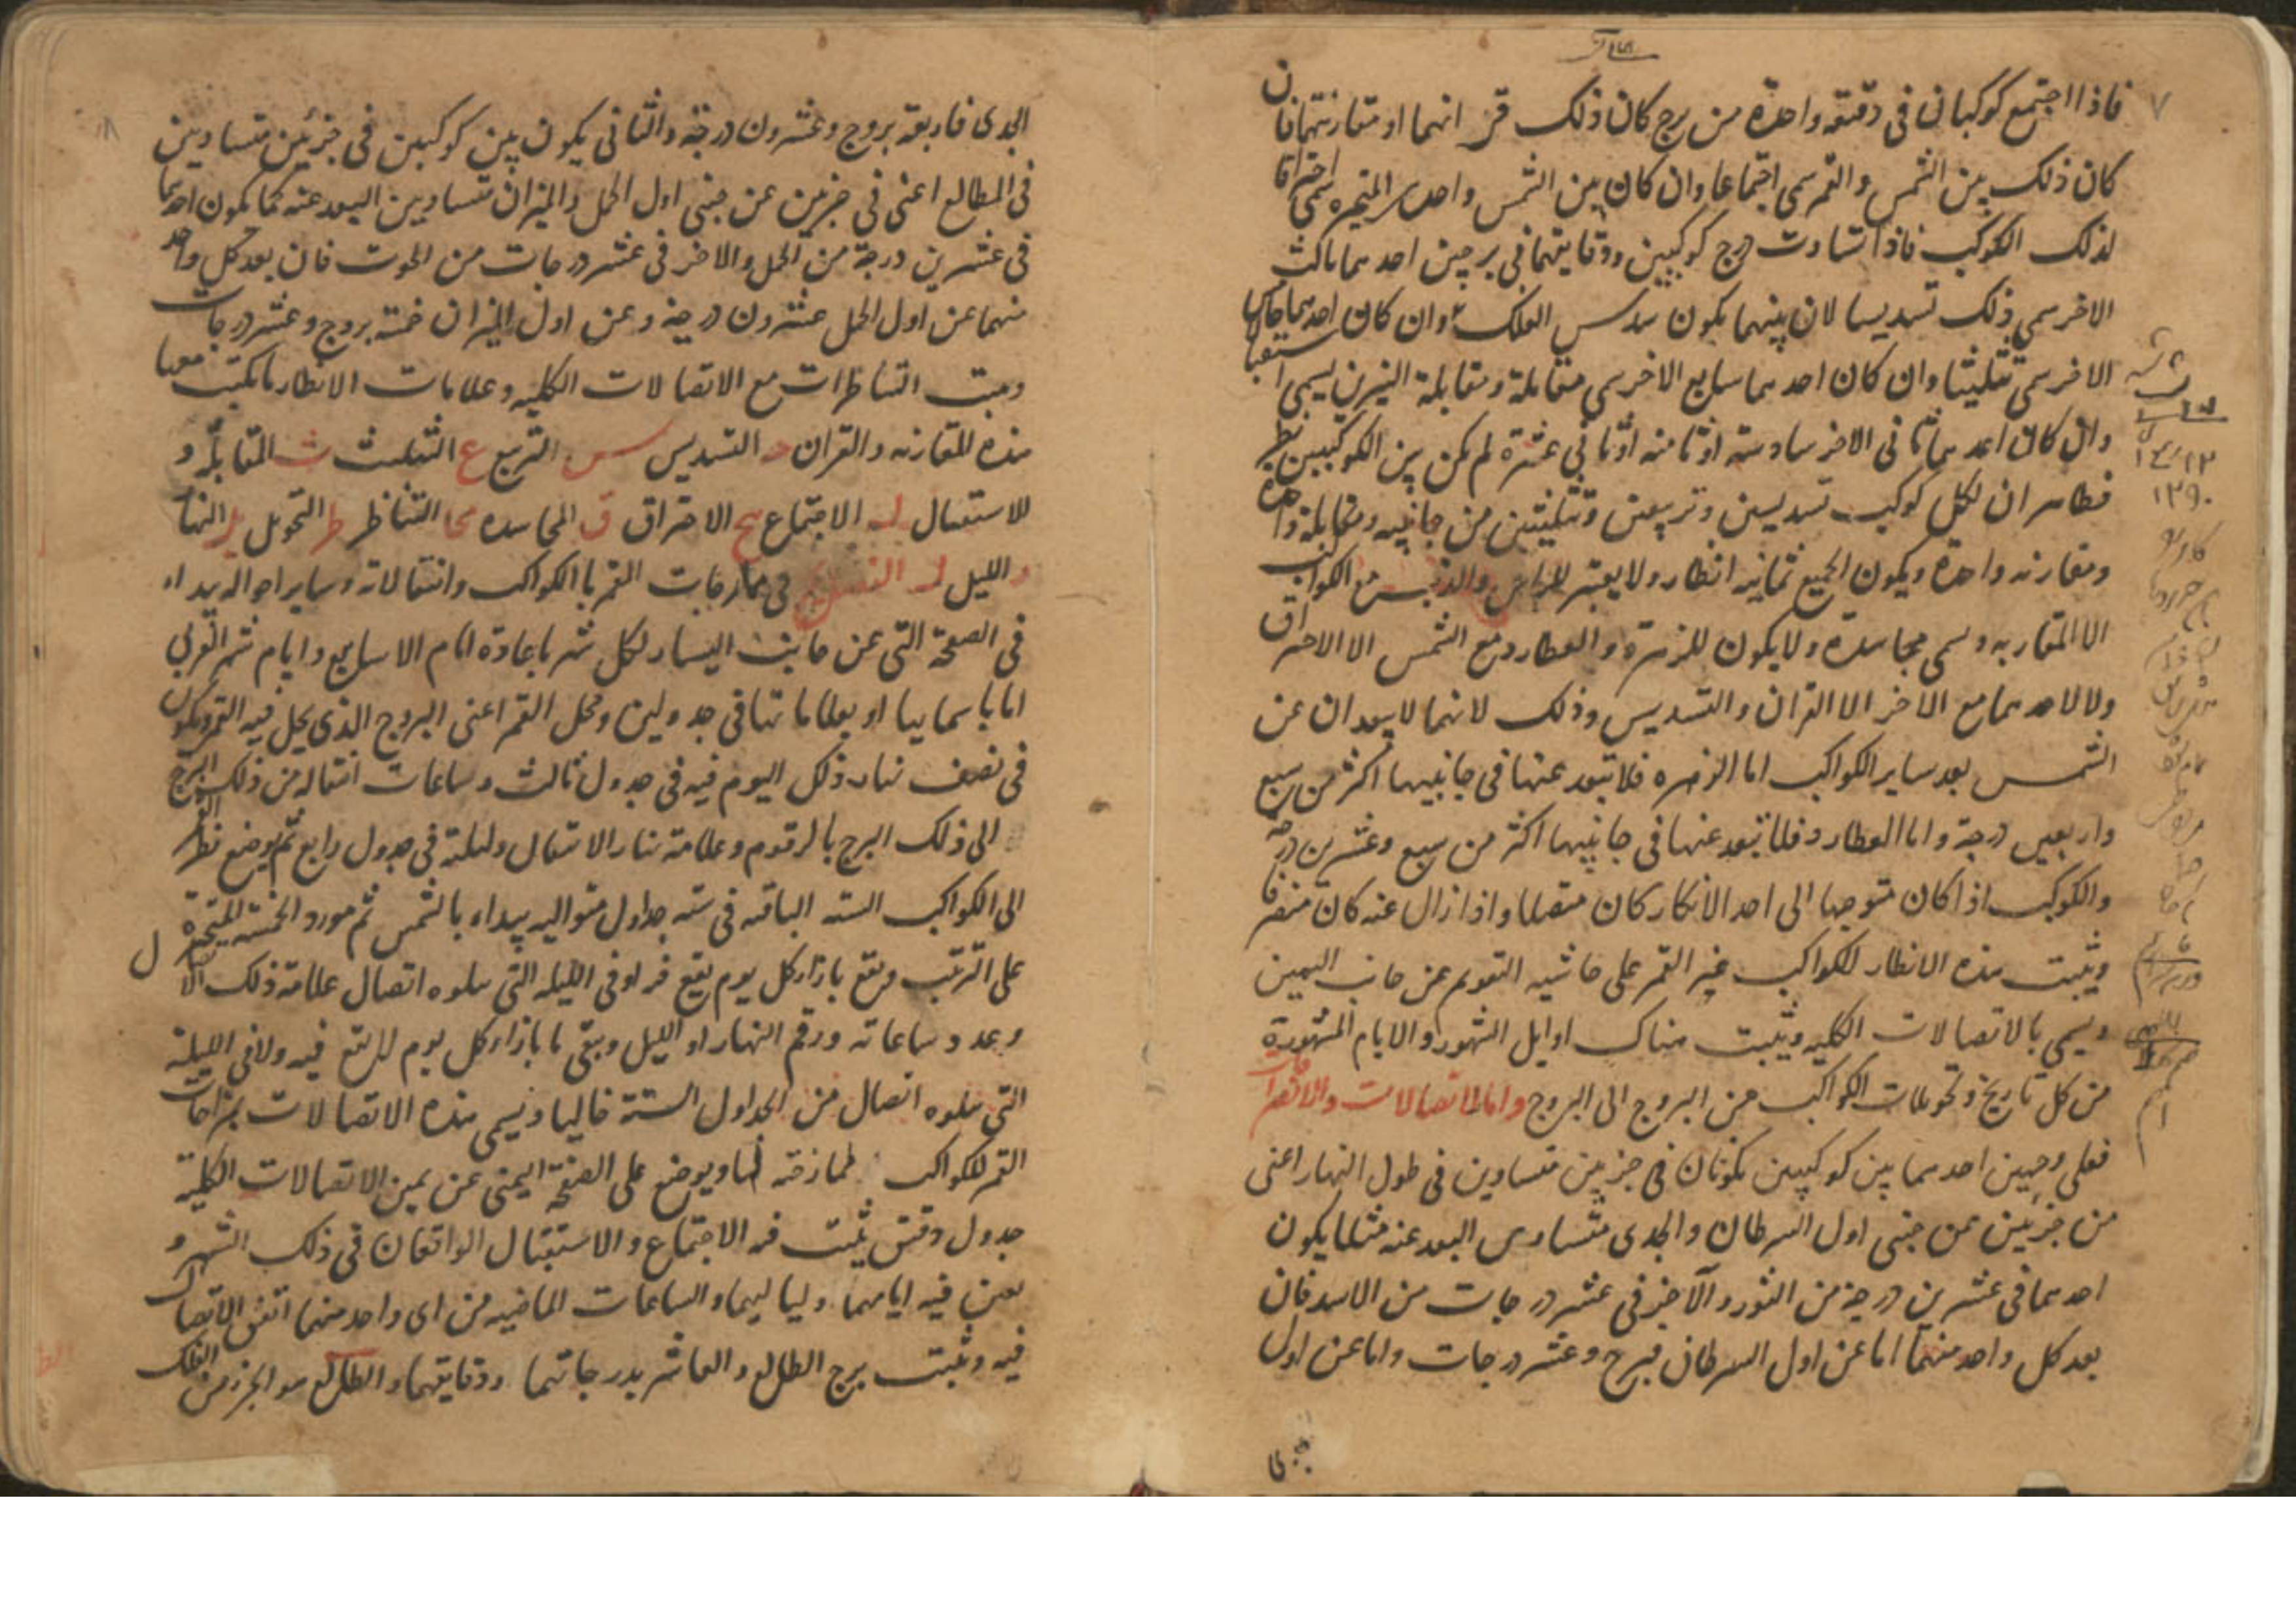 فاذا اجتمع كوكبان فى دقيقة واحدة من برج كان ذلك قرانهما او مقارنتهما فان
كان ذلك بين الشمس والقمر سمى اجتماعا وان كان بين الشمس واحدى المتحيرة سمى احتراقا
لذلك الكوكب فاذا تساوت درج كوكبين ودقايقهما فى برجين احدهما ثالث
الاخر سمى ذلك تسديسا لان بينهما يكون سدس الفلك وان كان احدهما خامس
الاخر سمى تثليثا وان كان احدهما سابع الاخر سمى مقابلة ومقابلة النيرين يسمى استقبالا
وان كان احدهما ثانى الاخر سادسه او ثامنه او ثانى عشره لم يكن بين الكوكبين نظر
فظاهر ان لكل كوكب تسديسين وتربيعين وتثليثين من جانبيه ومقابلة واحدة
ومقارنه واحدة ويكون الجميع ثمانيه انظار ولا يعتبر للراس والذنب مع الكواكب
الا المقاربه وسمى مجاسدة ولا يكون للزهرة والعطارد مع الشمس الا الاحتراق
ولا لاحدهما مع الاخر الا القران والتسديس وذلك لانهما لا يبعدان عن
الشمس بعد ساير الكواكب اما الزهره فلا تبعد عنها فى جانبيها اكثر من سبع
واربعين درجة واما العطارد فلا تبعد عنها فى جانبيها اكثر من سبع وعشرين درجة
والكوكب اذا كان متوجها الى احد الانظار كان متصلا واذا زال عنه كان منصرفا
ويثبت هذه الانظار للكواكب غير القمر على حاشيه التقويم عن جانب اليمين
ويسمى بالاتصالات الكليه ويثبت هناك اوايل الشهور والايام المشهورة
من كل تاريخ وتحويلات الكواكب من البروج الى البروج واما الاتصالات والانصرافات
فعلى وجهين احدهما بين كوكبين يكونان فى جزئين متساويين فى طول النهار اعنى
من جزئين عن جنبى اول السرطان والجدى متساوى البعد عنه مثلا يكون
احدهما فى عشرين درجة من الثور والآخر فى عشر درجات من الاسد فان
بعد كل واحد منهما اما عن اول السرطان فبرج وعشر درجات واما عن اول
الجدى فاربعة بروج وعشرون درجة والثانى يكون بين كوكبين فى جزئين متساويين
فى المطالع اعنى فى جزئين عن جنبى اول الحمل والميزان متساويين البعد عنه كما يكون احدهما
فى عشرين درجة من الحمل والاخر فى عشر درجات من الحوت فان بعد كل واحد
منهما عن اول الحمل عشرون درجة وعن اول الميزان خمسة بروج وعشر درجات
ويثبت التناظرات مع الاتصالات الكليه وعلامات الانظار ما يكتب معها
هذه للمقارنه والقران ن التسديس س التربيع ع التثليث ث المقابلة و
للاستقبال له الاجتماع مع الاحتراق ق المجاسده محا التناظر ظ التحويل يل النهار
ر الليل ل الفصل فى ممازجات القمر بالكواكب وانتقالاته وساير احواله يبداء
فى الصفحة التى عن جانب اليسار لكل شهر باعادة ايام الاسابيع وايام شهر العربى
اما باسماييها او بعلاماتها فى جدولين ومحل القمر اعنى البروج الذى يحل فيه القمر ويكون
فى نصف نهار ذلك اليوم فيه فى جدول ثالث وساعات انتقاله من ذلك البرج
الى ذلك البرج بالرقوم وعلامة نهار الانتقال وليلته فى جدول رابع ثم يوضع نظر القمر
الى الكواكب السته الباقيه فى سته جداول متواليه يبداء بالشمس ثم مورد الخمسه المتحيرة
على الترتيب ويقع بازاء كل يوم يقع فيه او فى الليله التى يتلوه اتصال علامة ذلك الاتصال
وعدد ساعاته ورقم النهار او الليل ويبقى ما بازاء كل يوم لا يقع فيه ولا فى الليلة
التى يتلوه اتصال من الجداول الستة خاليا ويسمى هذه الاتصالات ممزاجات
القمر للكواكب لممازجته لها ويوضع على الصفحة اليمنى عن يمين الاتصالات الكلية
جدول دقيق يثبت فيه الاجتماع والاستقبال الواقعان فى ذلك الشهر و
يعين فيه ايامهما ولياليهما والساعات الماضيه من اى واحد منهما اتفق الاتصال
فيه ويثبت برج الطالع والعاشر بدرجاتهما ودقايقهما والطالع هو الجزء من الفلك